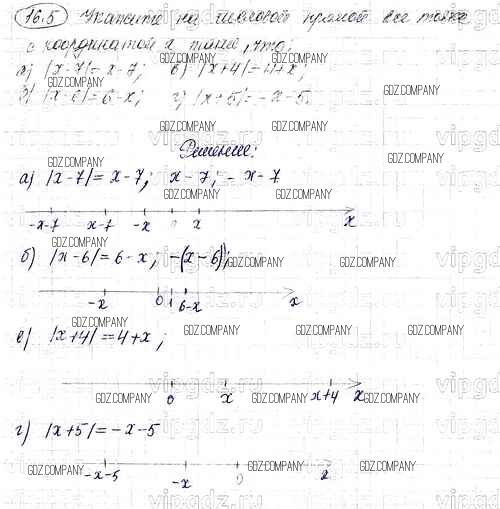 16.5 Укажите на числовой прямой все точки
с координатой x такие, что:
а) |x-7|=x-7; в) |x+4|=4+x;
б) |x-6|=6-x; г) |x+5|=-x-5.
Решение:
а) |x-7|=x-7; x-7; -x-7
-x-7 x-7 -x 0 x x
б) |x-6|=6-x; -(x-6);
-x 0 1 6-x x
в) |x+4|=4+x;
0 x x+4 x
г) |x+5|=-x-5
-x-5 -x 0 x
GDZ.COMPANY
vipgdz.ru